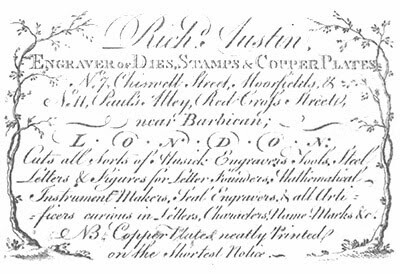 Richd. Austin,
ENGRAVER OF DIES, STAMPS & COPPER PLATES
No. 7, Chiswell Street, Moorfields, &
No. 11, Paul's Alley, (Red Cross Street)
near Barbican;
LONDON:
Cuts all Sorts of Musick Engravers Tools, Steel
Letters & Figures for Letter Founders, Mathematical
Instrument Makers, Seal Engravers, & all Arti-
-ficers curious in Letters, Characters, Name Marks &c.
NB. Copper Plates neatly Printed
on the Shortest Notice